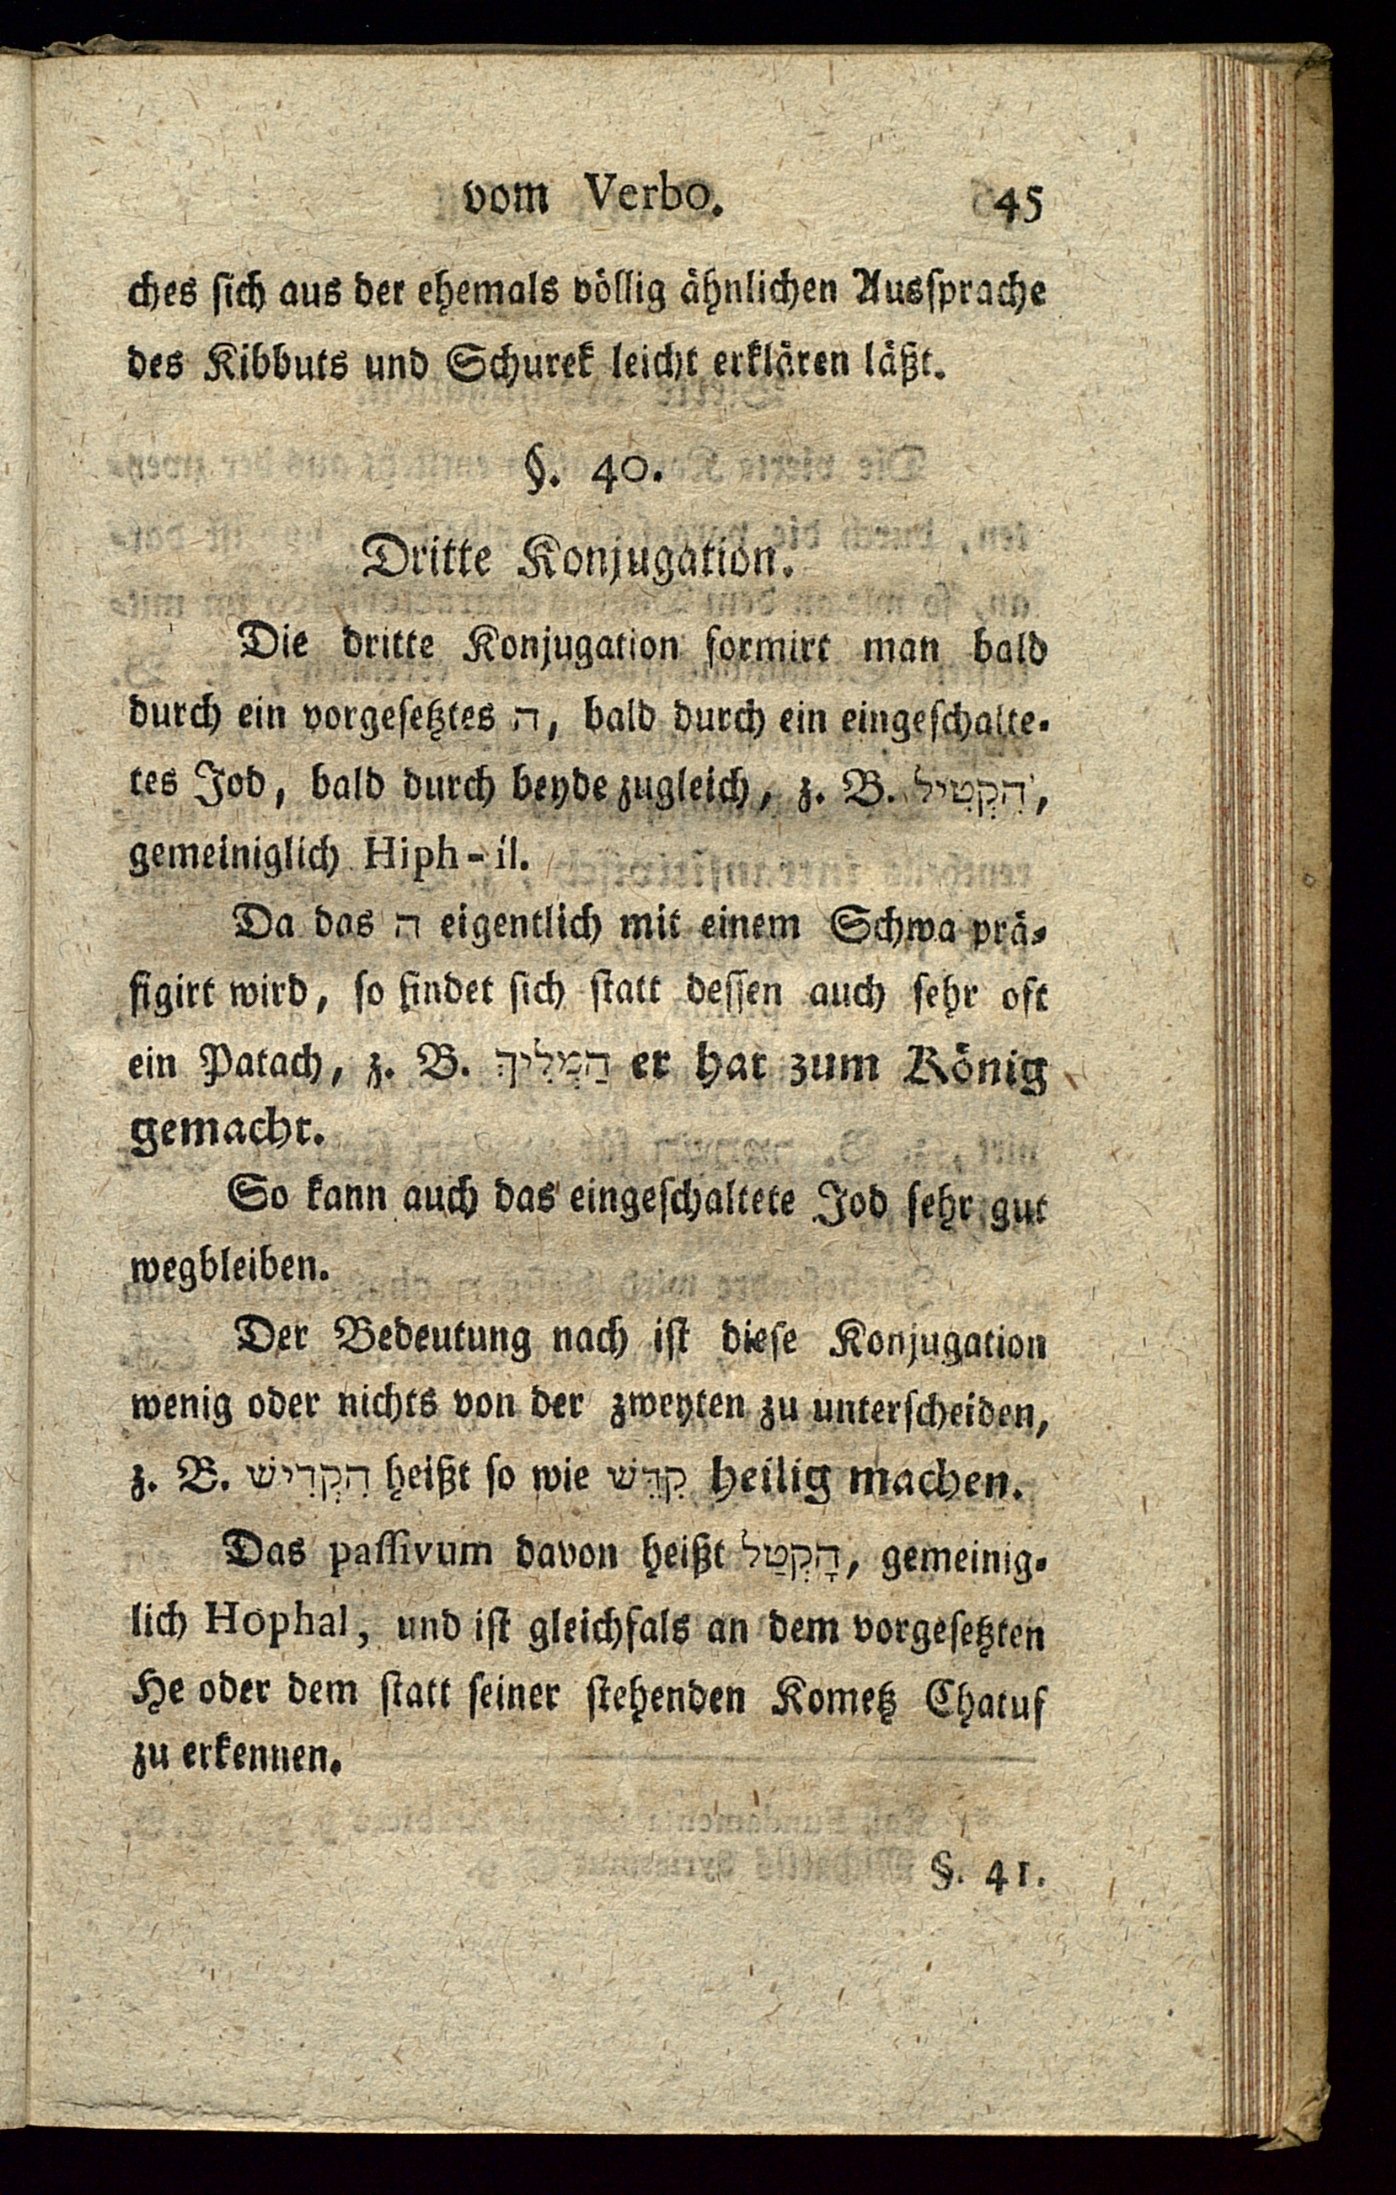 vom Verbo. 45
ches sich aus der ehemals völlig ähnlichen Aussprache
des Kibbuts und Schurek leicht erklären läßt.
§. 40.
Dritte Konjugation.
Die dritte Konjugation formirt man bald
durch ein vorgesetztes ה, bald durch ein eingeschalte-
tes Jod, bald durch beyde zugleich, z. B. הִקְטִיל,
gemeiniglich Hiph-il.
Da das ה eigentlich mit einem Schwa prä-
figirt wird, so findet sich statt dessen auch sehr oft
ein Patach, z. B. הַמְלִיךְ er hat zum König
gemacht.
So kann auch das eingeschaltete Jod sehr gut
wegbleiben.
Der Bedeutung nach ist diese Konjugation
wenig oder nichts von der zweyten zu unterscheiden,
z. B. הִקְדִישׁ heißt so wie קִדֵשׁ heilig machen.
Das passivum davon heißt הָקְטַל, gemeinig-
lich Hophal, und ist gleichfals an dem vorgesetzten
He oder dem statt seiner stehenden Kometz Chatuf
zu erkennen.
§. 41.